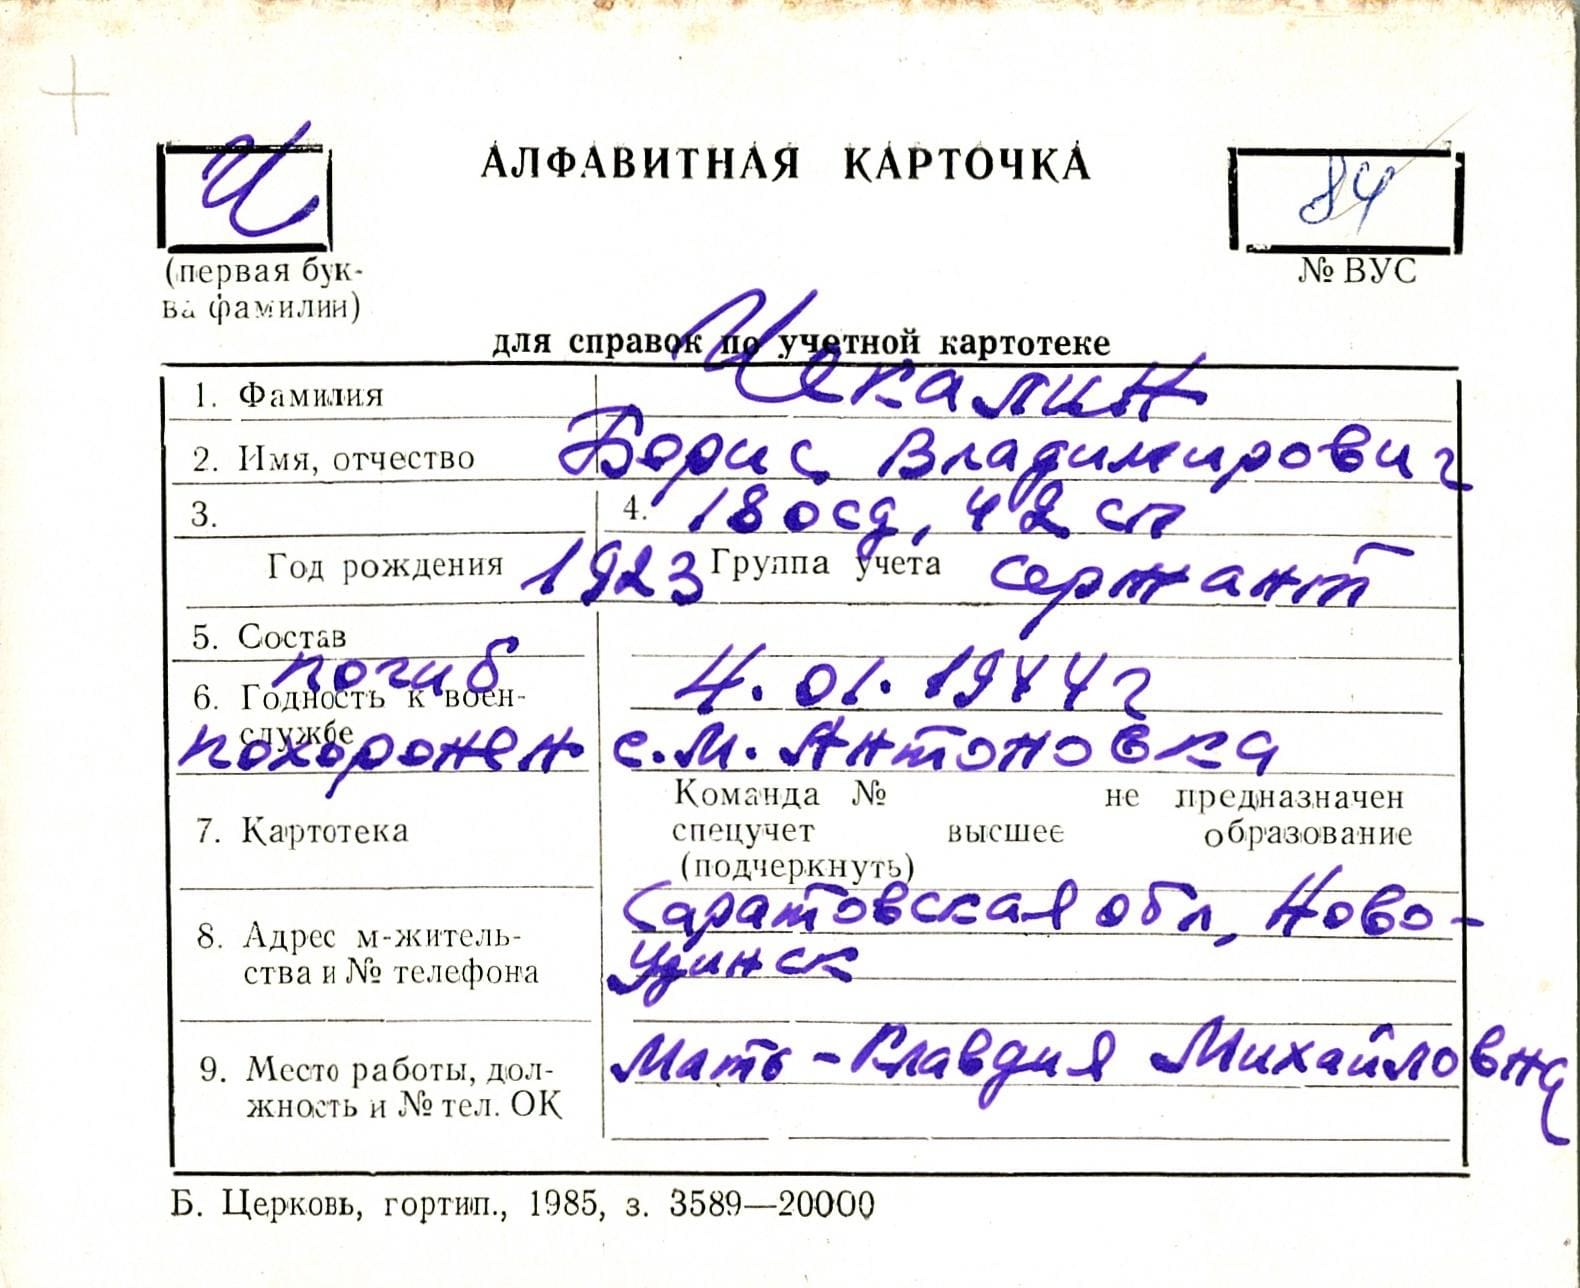 Ч
АЛФАВИТНАЯ КАРТОЧКА
84
(первая бук-
ва фамилии)
№ ВУС
для справок по учетной картотеке
1. Фамилия Чекалин
2. Имя, отчество Борис Владимирович
3. 4. 180сд, 42 сп
Год рождения 1923 Группа учета сержант
5. Состав
погиб 4.01.1944г
6. Годность к воен-
службе
похоронен с.М.Антоновка
Команда № не предназначен
7. Картотека спецучет высшее образование
(подчеркнуть)
Саратовская обл, Ново-
8. Адрес м-житель-
ства и № телефона
удинск
9. Место работы, дол-
жность и № тел. ОК
Мать - Клавдия Михайловна
Б. Церковь, гортип., 1985, з. 3589—20000